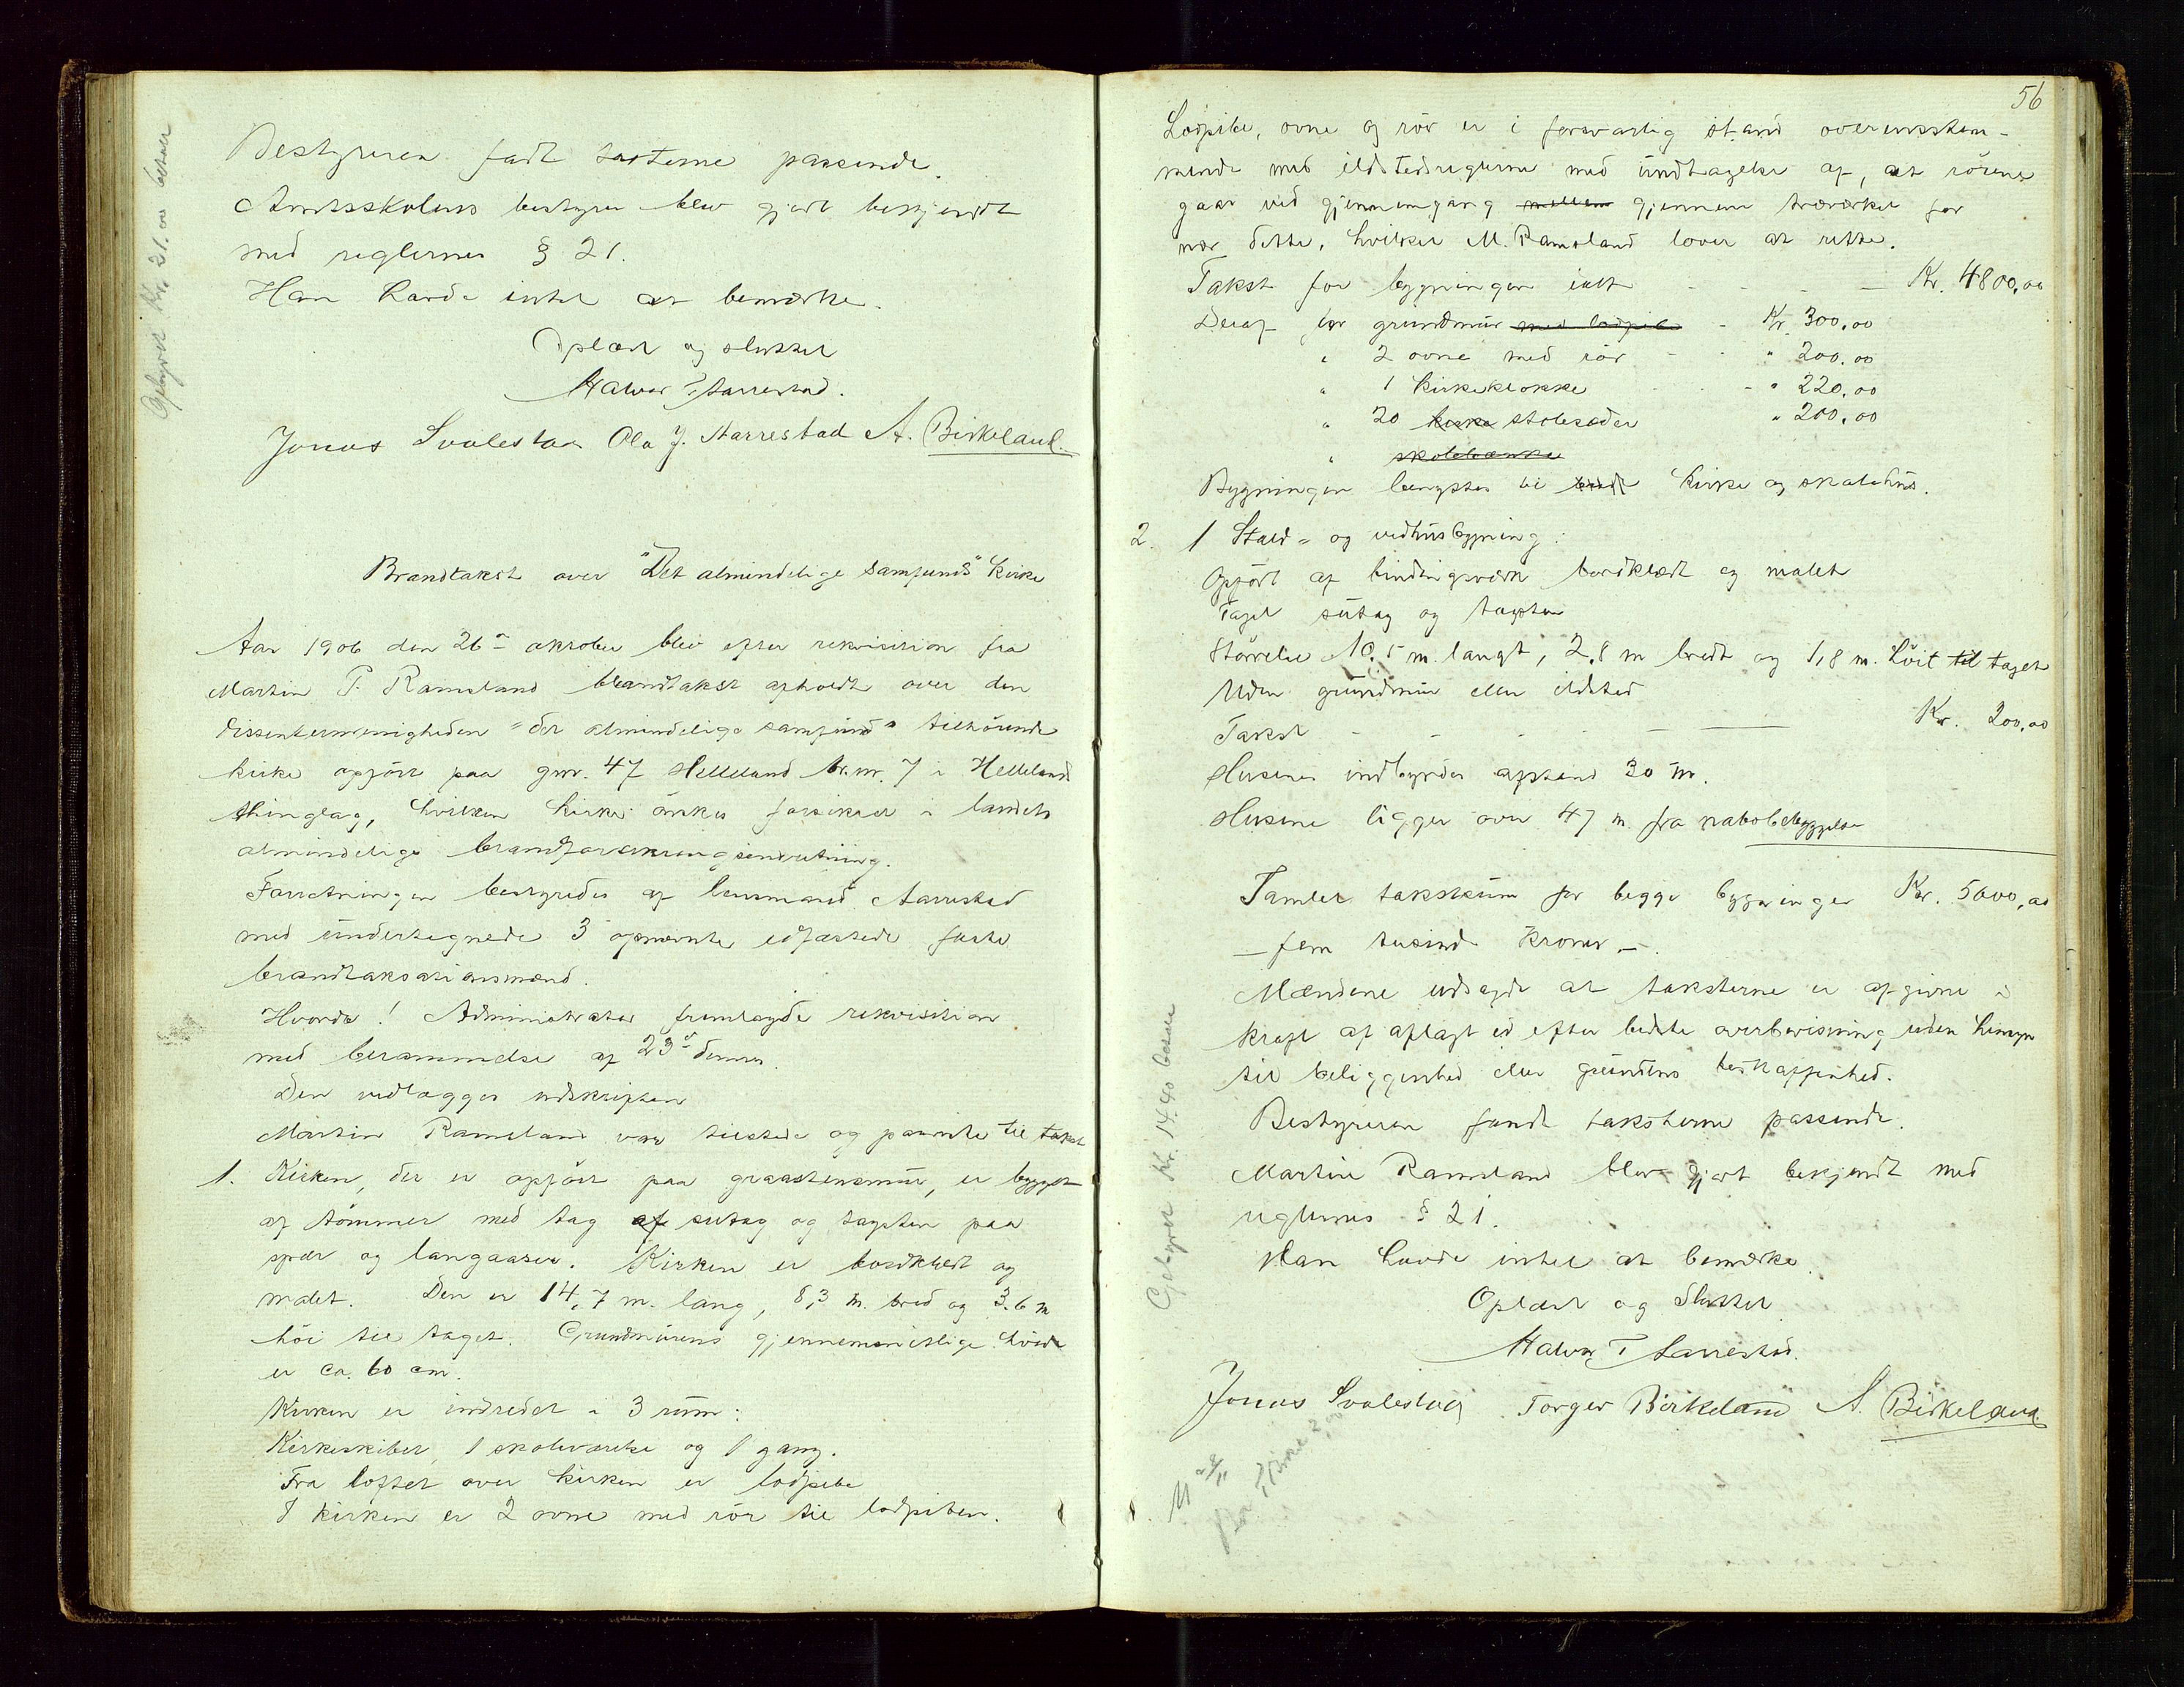 Gebyret Kr. 21.00 betalt
Bestyreren fadt taxterne passende.
Amtsskolens bestyrer blev gjort bekjendt
med reglernes § 21.
Han havde intet at bemærke.
Oplæst og sluttet
Halvor T Aarrestad.
Jonas Svalestad Ola J. Aarrestad A. Birkeland.
Brandtakst over "Det almindelige samfunds" Kirke
Aar 1906 den 26de oktober blev efter rekvisition fra
Martin P. Ramsland brandtakst afholdt over den
dissentermenigheden "det almindelige samfund" tilhørende
kirke opført paa gnr. 47 Helleland br.nr. 7 i Helleland
thinglag, hvilken kirke ønskes forsikret i landets
almindelige brandforsikringsindretning.
Forretningen bestyredes af lensmand Aarrestad
med undertegnede 3 opnævnte edfæstede faste
brandtaksationsmænd.
Hvorda! Administrator fremlagde rekvisition
med berammelse af 23de dennes.
Den vedlægges udskriften
Martin Ramsland var tilstede og paaviste til takst
1. Kirken, der er opført paa graastensmur, er bygget
af tømmer med tag af sutag og tagsten paa
spær og langaaser. Kirken er bordklædt og
malet. Den er 14,7 m. lang, 8,3 m. bred og 3.6 m
høi til taget. Grundmurens gjennemsnitlige høide
er ca. 60 cm.
Kirken er indredet i 3 rum:
Kirkeskibet, 1 skoleværelse og 1 gang.
Fra loftet over kirken er lodpibe
I kirken er 2 ovne med rør til lodpiben.
56
Lodpibe, ovne og rør er i forsvarlig stand overensstem-
mende med ildstedsreglerne med undtagelse af, at rørene
gaar ved gjennemgang mellem gjennem træverket for
nær dette, hvilket M. Ramsland lover at rette.
Takst for bygningen ialt - - - - Kr. 4800,00
Deraf for grundmur med lodpibe - Kr. 300,00
" 2 ovne med rør - - " 200.00
" 1 kirkeklokke - - " 220,00
" 20 kirke stolesæder " 200.00
" skolebænke
Bygningen benyttes til både kirke og skolehus.
2. 1 Stald- og vedhusbygning:
Opført af bindingsværk bordklædt og malet
Taget sutag og tagsten
Størrelse 10,5 m. langt, 2,8 m bredt og 1,8 m. høit til taget
Uden grundmur eller ildsted
Takst - - - - - Kr. 200,00
Husenes indbyrdes afstand 30 m.
Husene ligger over 47 m. fra nabobebyggelse
Samlet takstsum for begge bygninger Kr. 5000,00
- fem tusinde kroner -.
Mændene udsagde at taksterne er afgivne i
kraft af aflagt ed efter bedste overbevisning uden hensyn
til beliggenhed eller grundens beskaffenhed.
Bestyreren fandt taksterne passende.
Martin Ramsland blev gjort bekjendt med
reglernes § 21.
Han havde intet at bemærke.
Oplæst og Sluttet
Halvor T Aarrestad.
Jonas Svalestad Torger Birkeland A. Birkeland
Gebyret Kr. 14.40 betalt